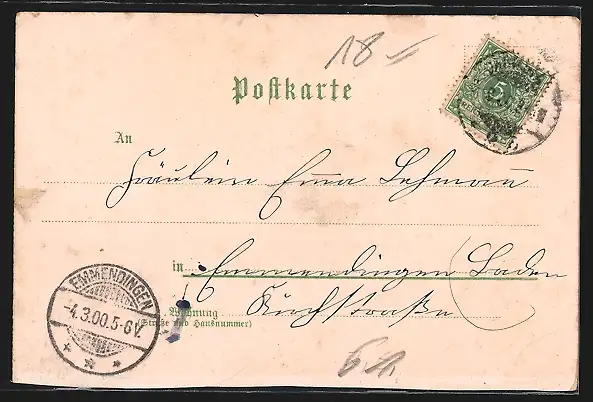 18 =
Postkarte
5
An
Fräulein Emma Lehmann
in Emmendingen (Baden
Kirchstraße
Wohnung
(Straße und Hausnummer)
EMMENDINGEN
-4.3.00.5-6V.